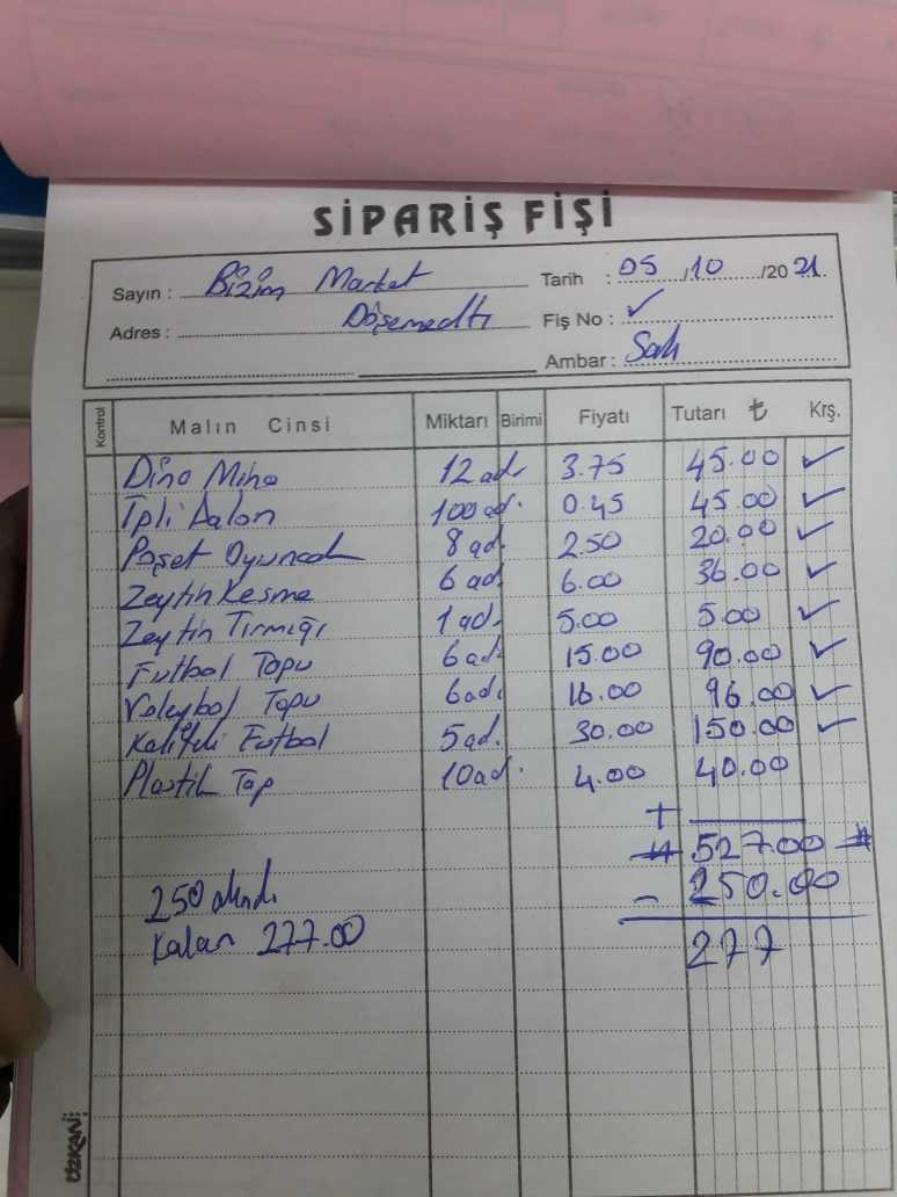 SİPARİŞ FİŞİ
Sayın : Bizim Market
Tarih : 05 / 10 / 20 21
Adres : Döşemealtı
Fiş No : ✓
Ambar : Salı
Kontrol Malın Cinsi Miktarı Birimi Fiyatı Tutarı ₺ Krş.
Dino Mino 12 ad. 3.75 45.00 ✓
İpli Balon 100 ad. 0.45 45.00 ✓
Poşet Oyuncak 8 ad. 2.50 20.00 ✓
Zeytin Kesme 6 ad 6.00 36.00 ✓
Zeytin Tırmığı 1 ad. 5.00 5.00 ✓
Futbol Topu 6 ad. 15.00 90.00 ✓
Voleybol Topu 6 ad. 16.00 96.00 ✓
Kaliteli Futbol 5 ad. 30.00 150.00 ✓
Plastik Top 10 ad. 4.00 40.00
+
# 527.00 #
250 alındı. - 250.00
Kalan 277.00 277